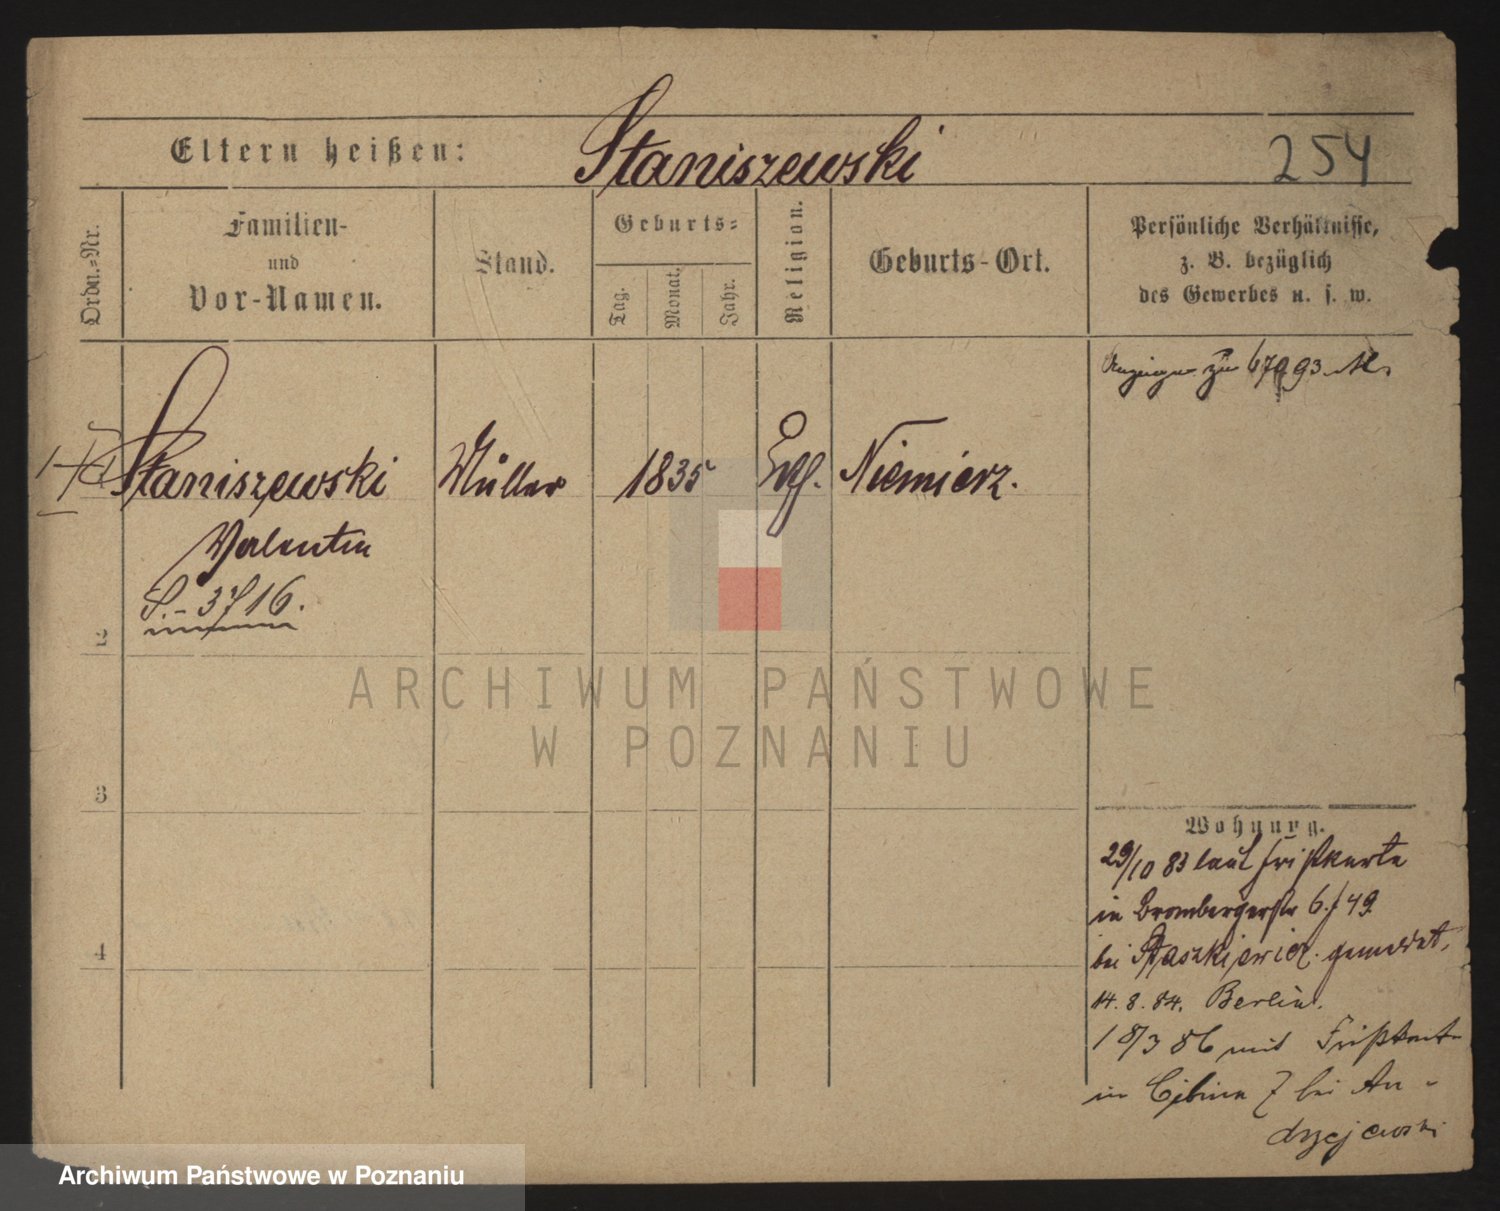 Eltern heißen: Staniszewski 254
Ordn.=Nr.
Familien-
und
Vor-Namen.
Stand.
Geburts=
Tag.
Monat.
Jahr.
Religion.
Geburts-Ort.
Persönliche Verhältnisse,
z. B. bezüglich
des Gewerbes u. s. w.
zu 67993
Staniszewski Müller 1835 Niemierz.
Valentin
S.- 3716.
2
3
Wohnung.
29/10 83 laut Fristkarte
in Brombergerstr 6.f 49.
bei Staszkiewicz. gemeldet,
4
14. 8. 84. Berlin.
18/3 86 mit Fristkart
in Cibina 7 bei An-
drzejewski
ARCHIWUM PAŃSTWOWE
W POZNANIU
Archiwum Państwowe w Poznaniu